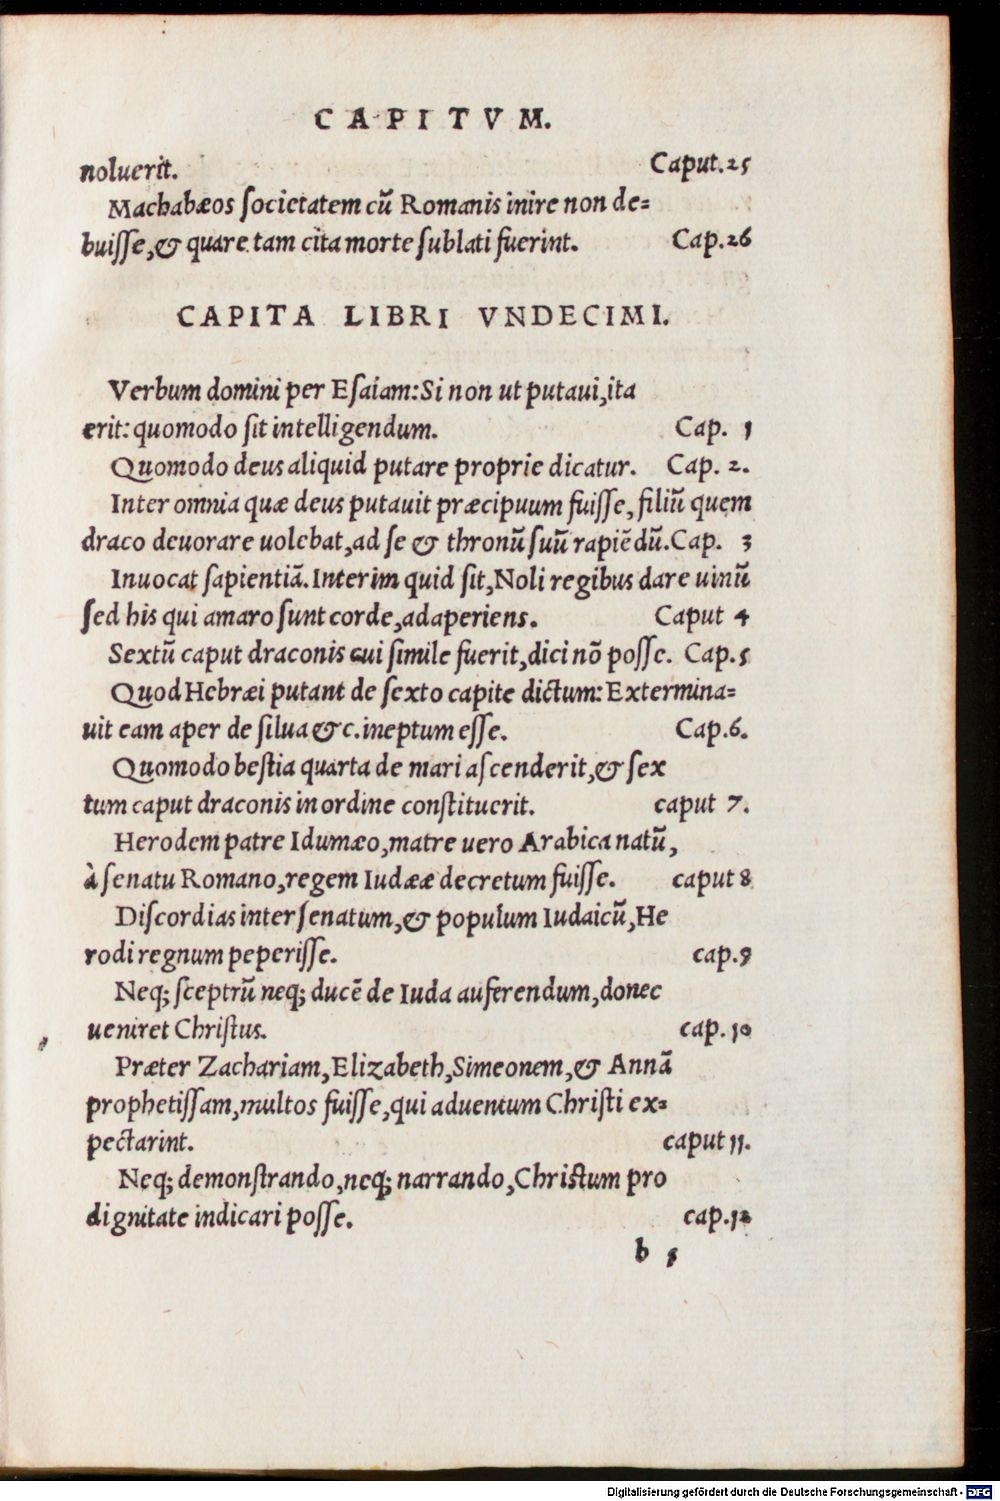 CAPITVM.
noluerit. Caput.25
Machabæos ſocietatem cū Romanis inire non de=
buiſſe,& quare tam cita morte ſublati fuerint. Cap.26
CAPITA LIBRI VNDECIMI.
Verbum domini per Eſaiam:Si non ut putaui,ita
erit: quomodo ſit intelligendum. Cap. 1
Quomodo deus aliquid putare proprie dicatur. Cap. 2.
Inter omnia quæ deus putauit præcipuum fuiſſe, filiū quem
draco deuorare uolebat,ad ſe & thronū ſuū rapiēdū.Cap. 3
Inuocat ſapientiā.Interim quid ſit,Noli regibus dare uinū
ſed his qui amaro ſunt corde,adaperiens. Caput 4
Sextū caput draconis cui ſimile fuerit,dici nō poſſe. Cap.5
Quod Hebræi putant de ſexto capite dictum: Extermina=
uit eam aper de ſilua &c.ineptum eſſe. Cap.6.
Quomodo beſtia quarta de mari aſcenderit,& ſex
tum caput draconis in ordine conſtituerit. caput 7.
Herodem patre Idumæo,matre uero Arabica natū,
à ſenatu Romano,regem Iudææ decretum fuiſſe. caput 8
Diſcordias inter ſenatum,& populum Iudaicū,He
rodi regnum peperiſſe. cap.9
Neq; ſceptrū neq; ducē de Iuda auferendum,donec
ueniret Chriſtus. cap.10
Præter Zachariam,Elizabeth,Simeonem,& Annā
prophetiſſam,multos fuiſſe,qui aduentum Chriſti ex=
pectarint. caput 11.
Neq; demonſtrando,neq; narrando,Chriſtum pro
dignitate indicari poſſe. cap.12
b 5
Digitalisierung gefördert durch die Deutsche Forschungsgemeinschaft - DFG